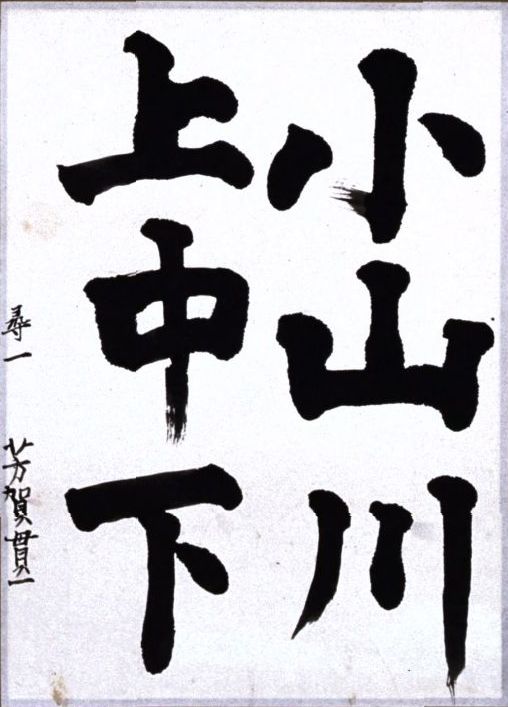 小山川
上中下
尋一 芳賀貫一